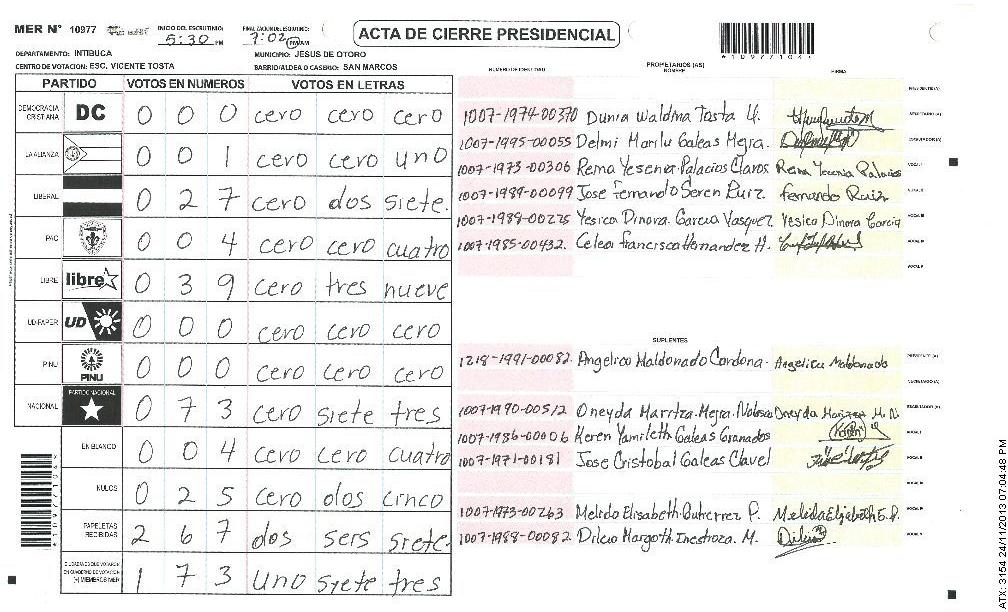 MER N° 10977
INICIO DEL ESCRUTINIO: 5:30 PM
FINALIZACION DEL ESCRUTINIO: 7:02 PM/AM
ACTA DE CIERRE PRESIDENCIAL
DEPARTAMENTO: INTIBUCA
MUNICIPIO: JESUS DE OTORO
CENTRO DE VOTACION: ESC. VICENTE TOSTA
BARRIO/ALDEA O CASERIO: SAN MARCOS
PARTIDO VOTOS EN NUMEROS VOTOS EN LETRAS
DEMOCRACIA CRISTIANA DC 0 0 0 cero cero cero
LA ALIANZA 0 0 1 cero cero uno
LIBERAL 0 2 7 cero dos siete.
PAC 0 0 4 cero cero cuatro
LIBRE libre 0 3 9 cero tres nueve
UD-FAPER UD 0 0 0 cero cero cero
PINU PINU 0 0 0 cero cero cero
NACIONAL PARTIDO NACIONAL 0 7 3 cero siete tres
EN BLANCO 0 0 4 cero cero cuatro
NULOS 0 2 5 cero dos cinco
PAPELETAS RECIBIDAS 2 6 7 dos seis siete
CIUDADANOS QUE VOTARON EN CUADERNO DE VOTACION (+) MIEMBROS MER 1 7 3 uno siete tres
NUMERO DE IDENTIDAD PROPIETARIOS (AS) NOMBRE FIRMA
PRESIDENTE (A)
1007-1974-00370 Dunia Waldina Tosta U. SECRETARIO (A)
1007-1995-00055 Delmi Marilu Galeas Mejia. ESCRUTADOR (A)
1007-1973-00306 Reina Yesenia Palacios Claros Reina Yecenia Palacios VOCAL I
1007-1989-00099 Jose Fernando Seren Ruiz. Fernando Ruiz VOCAL II
1007-1989-00275 Yesica Dinora. Garcia Vasquez Yesica Dinora Garcia VOCAL III
1007-1985-00432. Celea Francisca Hernandez H. VOCAL IV
VOCAL V
SUPLENTES
1218-1991-00082. Angelica Maldonado Cardona. Angelica Maldonado PRESIDENTE (A)
SECRETARIO (A)
1007-1990-00512 Oneyda Maritza Mejia. Oneyda Maritza M. N. ESCRUTADOR (A)
1007-1986-00006 Keren Yamileth Galeas Granados VOCAL I
1007-1971-00181 Jose Cristobal Galeas Clavel VOCAL II
1007-1973-00263 Melida Elisabeth Gutierrez P. VOCAL IV
1007-1988-00082 Dilcia Margoth Inestroza. M. VOCAL V
ATX: 3154 24/11/2013 07:04:48 PM